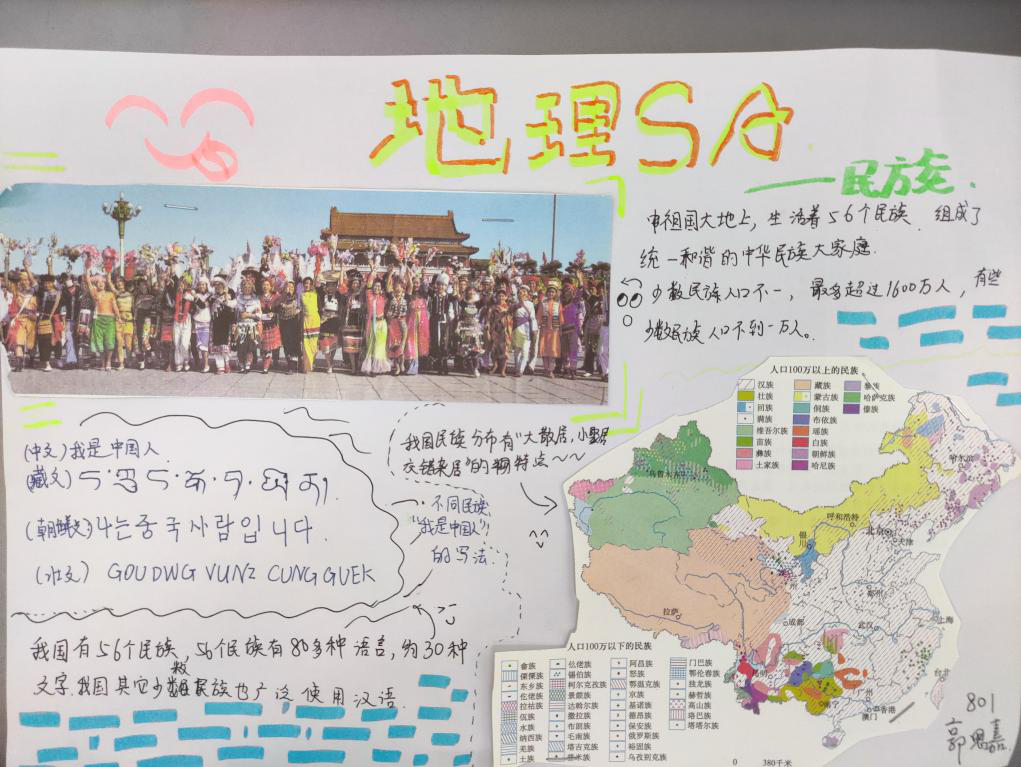 地理SA
——民族.
中祖国大地上，生活着56个民族.组成了
统一和谐的中华民族大家庭.
少数民族人口不一，最多超过1600万人，有些
少数民族人口不到一万人。
(中文)我是中国人
(藏文)
(朝鲜文)나는중국사람입니다.
(壮文) GOUDWG VUNZ CUNGGUEK
我国民族分布有"大散居,小聚居
交错杂居"的特点~~
不同民族
"我是中国人"
的写法.
我国有56个民族,56个民族有80多种语言,约30种
文字.我国其它少数民族也广泛使用汉语.
人口100万以上的民族
汉族 藏族 彝族
壮族 蒙古族 哈萨克族
回族 侗族 傣族
满族 布依族
维吾尔族 瑶族
苗族 白族
彝族 朝鲜族
土家族 哈尼族
乌鲁木齐
哈尔滨
呼和浩特
北京
天津
银川
兰州
郑州
拉萨
成都
武汉
上海
昆明
南宁
广州
香港
澳门
台北
人口100万以下的民族
畲族 仫佬族 阿昌族 门巴族
傈僳族 锡伯族 怒族 鄂伦春族
东乡族 柯尔克孜族 鄂温克族 独龙族
仡佬族 景颇族 京族 赫哲族
拉祜族 达斡尔族 基诺族 高山族
佤族 撒拉族 德昂族 珞巴族
水族 布朗族 保安族 塔塔尔族
纳西族 毛南族 俄罗斯族
羌族 塔吉克族 裕固族
土族 普米族 乌孜别克族
0 380千米
801
郭思嘉